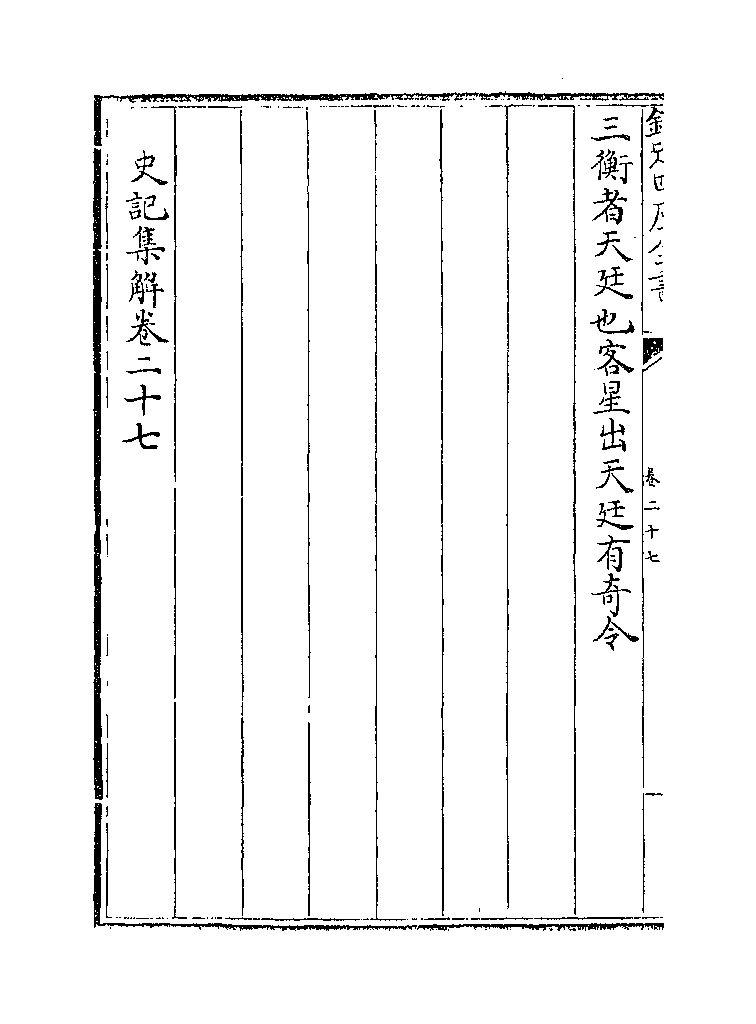 欽定四庫全書
卷二十七
三衡者天廷也客星出天廷有奇令
史記集解卷二十七